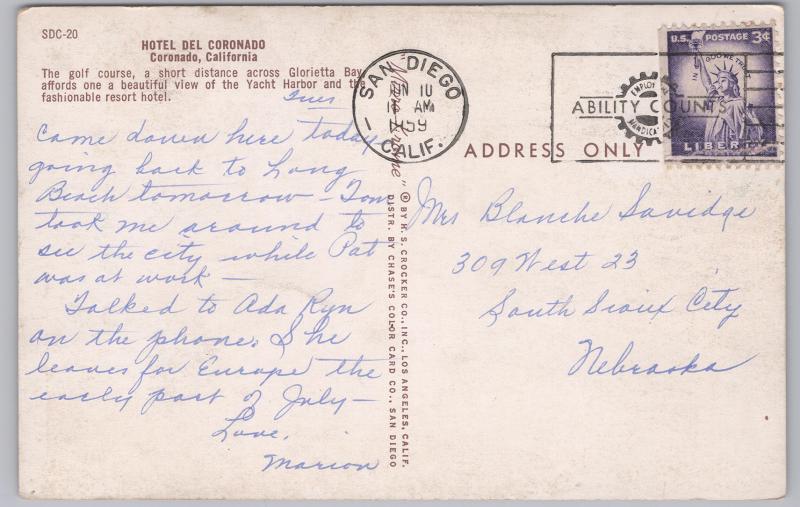 SDC-20
HOTEL DEL CORONADO
Coronado, California
The golf course, a short distance across Glorietta Bay,
affords one a beautiful view of the Yacht Harbor and the
fashionable resort hotel.
Tues
Came down here today
going back to Long
Beach tomorrow - Tom
took me around to
see the city while Pat
was at work -
Talked to Ada Ryn
on the phone. She
leaves for Europe the
early part of July -
Love,
Marion
"Mirro-Krome" ® BY H. S. CROCKER CO., INC., LOS ANGELES, CALIF.
DISTR. BY CHASE'S COLOR CARD CO., SAN DIEGO
SAN DIEGO
10
AM
1959
CALIF.
ABILITY COUNTS
U.S. POSTAGE 3¢
IN GOD WE TRUST
LIBERTY
ADDRESS ONLY
Mrs Blanche Savidge
309 West 23
South Sioux City
Nebraska